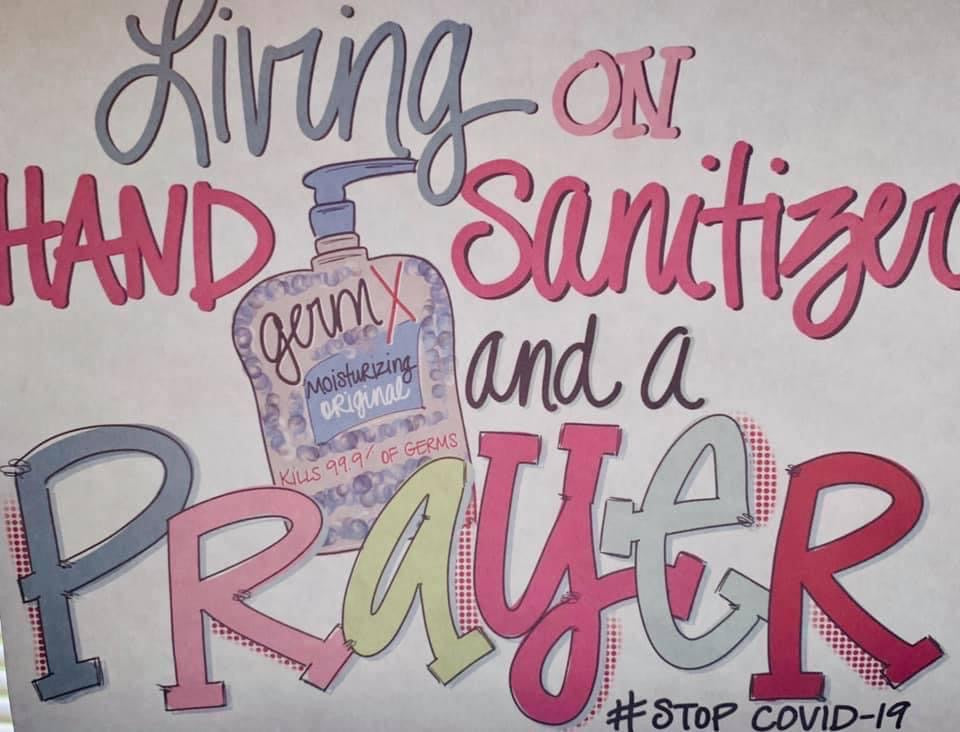 Living ON
HAND Sanitizer
germ X
Moisturizing
ORiginal
KiLLS 99.9% OF GERMS
and a
PRayeR
#STOP COVID-19